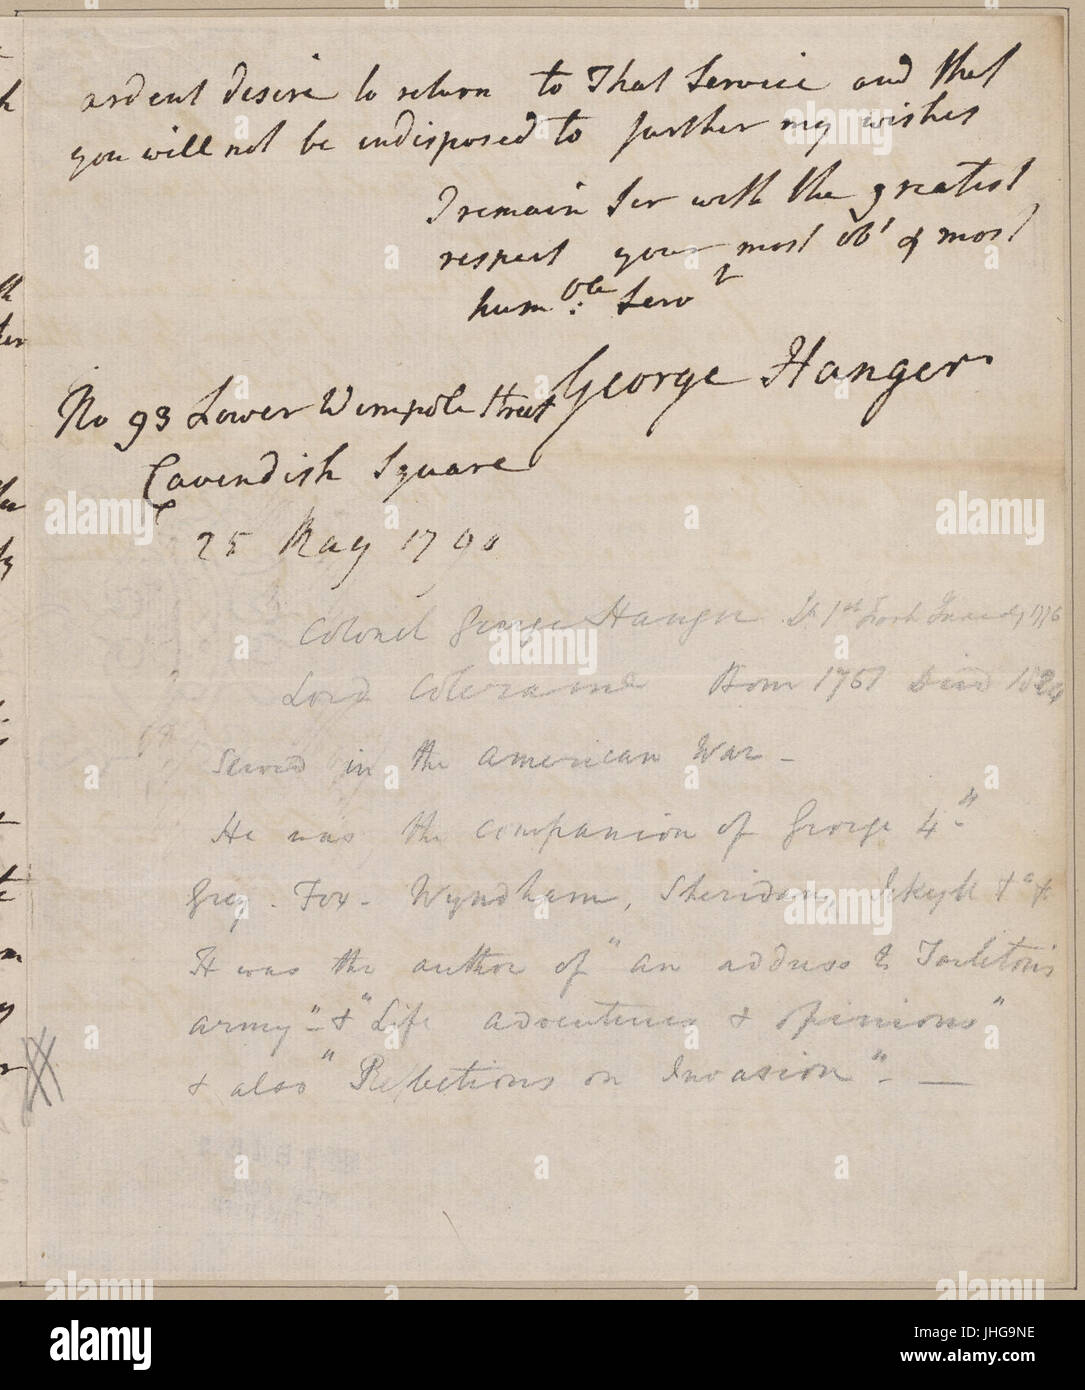 ardent desire to return to That Service and that
you will not be indisposed to further my wishes
I remain Sir with the greatest
respect your most ob^t & most
hum^ble: Serv^t
George Hanger
No 93 Lower Wimpole Street
Cavendish Square
25 May 1790
Colonel George Hanger Lt 1st Foot 1776
Lord Coleraine Born 1751 Died 1824
Served in the American War -
He was the companion of George 4th
Grey - Fox - Wyndham, Sheridan, Jekyll &c &
H was the author of "an address to Tarleton's
army" - & "Life adventures & opinions"
& also "Reflections on Invasion" - —
alamy
Image ID: JHG9NE
www.alamy.com